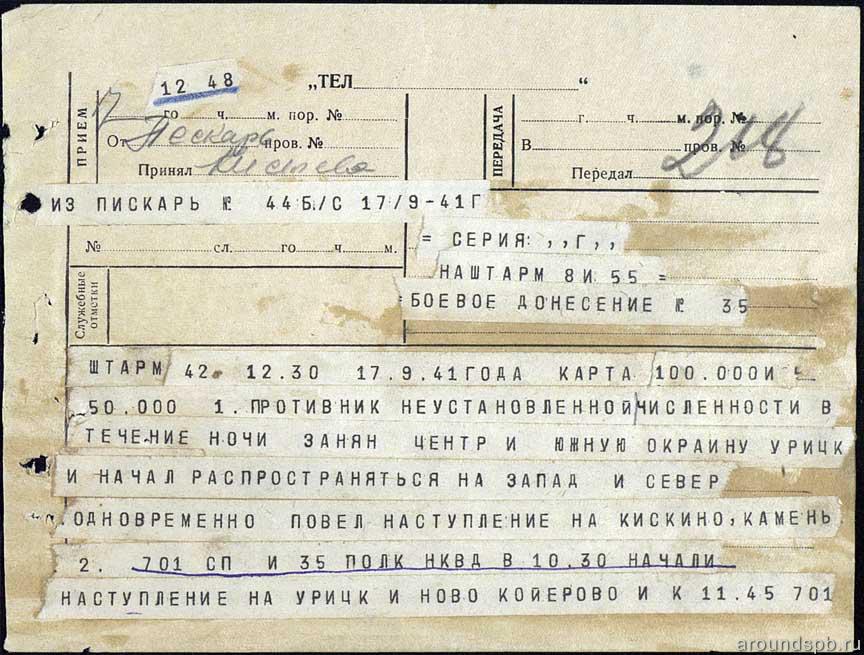 12 48
„ТЕЛ“
ПРИЕМ
го ч. м. пор. №
От Пескарь пров. №
Принял
ПЕРЕДАЧА
г. ч. м. пор. №
В пров. №
Передал
ИЗ ПИСКАРЬ № 44Б/С 17/9-41Г
№ сл. го ч. м.
= СЕРИЯ ,,Г,,
НАШТАРМ 8И 55 =
Служебные отметки
=БОЕВОЕ ДОНЕСЕНИЕ № 35
ШТАРМ 42. 12.30 17.9.41ГОДА КАРТА 100.000И
50.000 1. ПРОТИВНИК НЕУСТАНОВЛЕННОЙ ЧИСЛЕННОСТИ В
ТЕЧЕНИЕ НОЧИ ЗАНЯН ЦЕНТР И ЮЖНУЮ ОКРАИНУ УРИЦК
И НАЧАЛ РАСПРОСТРАНЯТЬСЯ НА ЗАПАД И СЕВЕР
ОДНОВРЕМЕННО ПОВЕЛ НАСТУПЛЕНИЕ НА КИСКИНО, КАМЕНЬ
2. 701 СП И 35 ПОЛК НКВД В 10.30 НАЧАЛИ
НАСТУПЛЕНИЕ НА УРИЦК И НОВО КОЙЕРОВО И К 11.45 701
aroundspb.ru